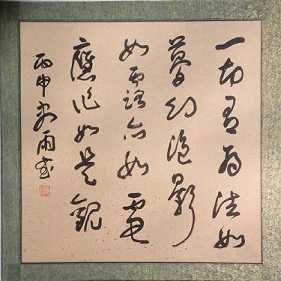 一切有為法如
夢幻泡影
如露亦如電
應作如是觀
丙申 雨書